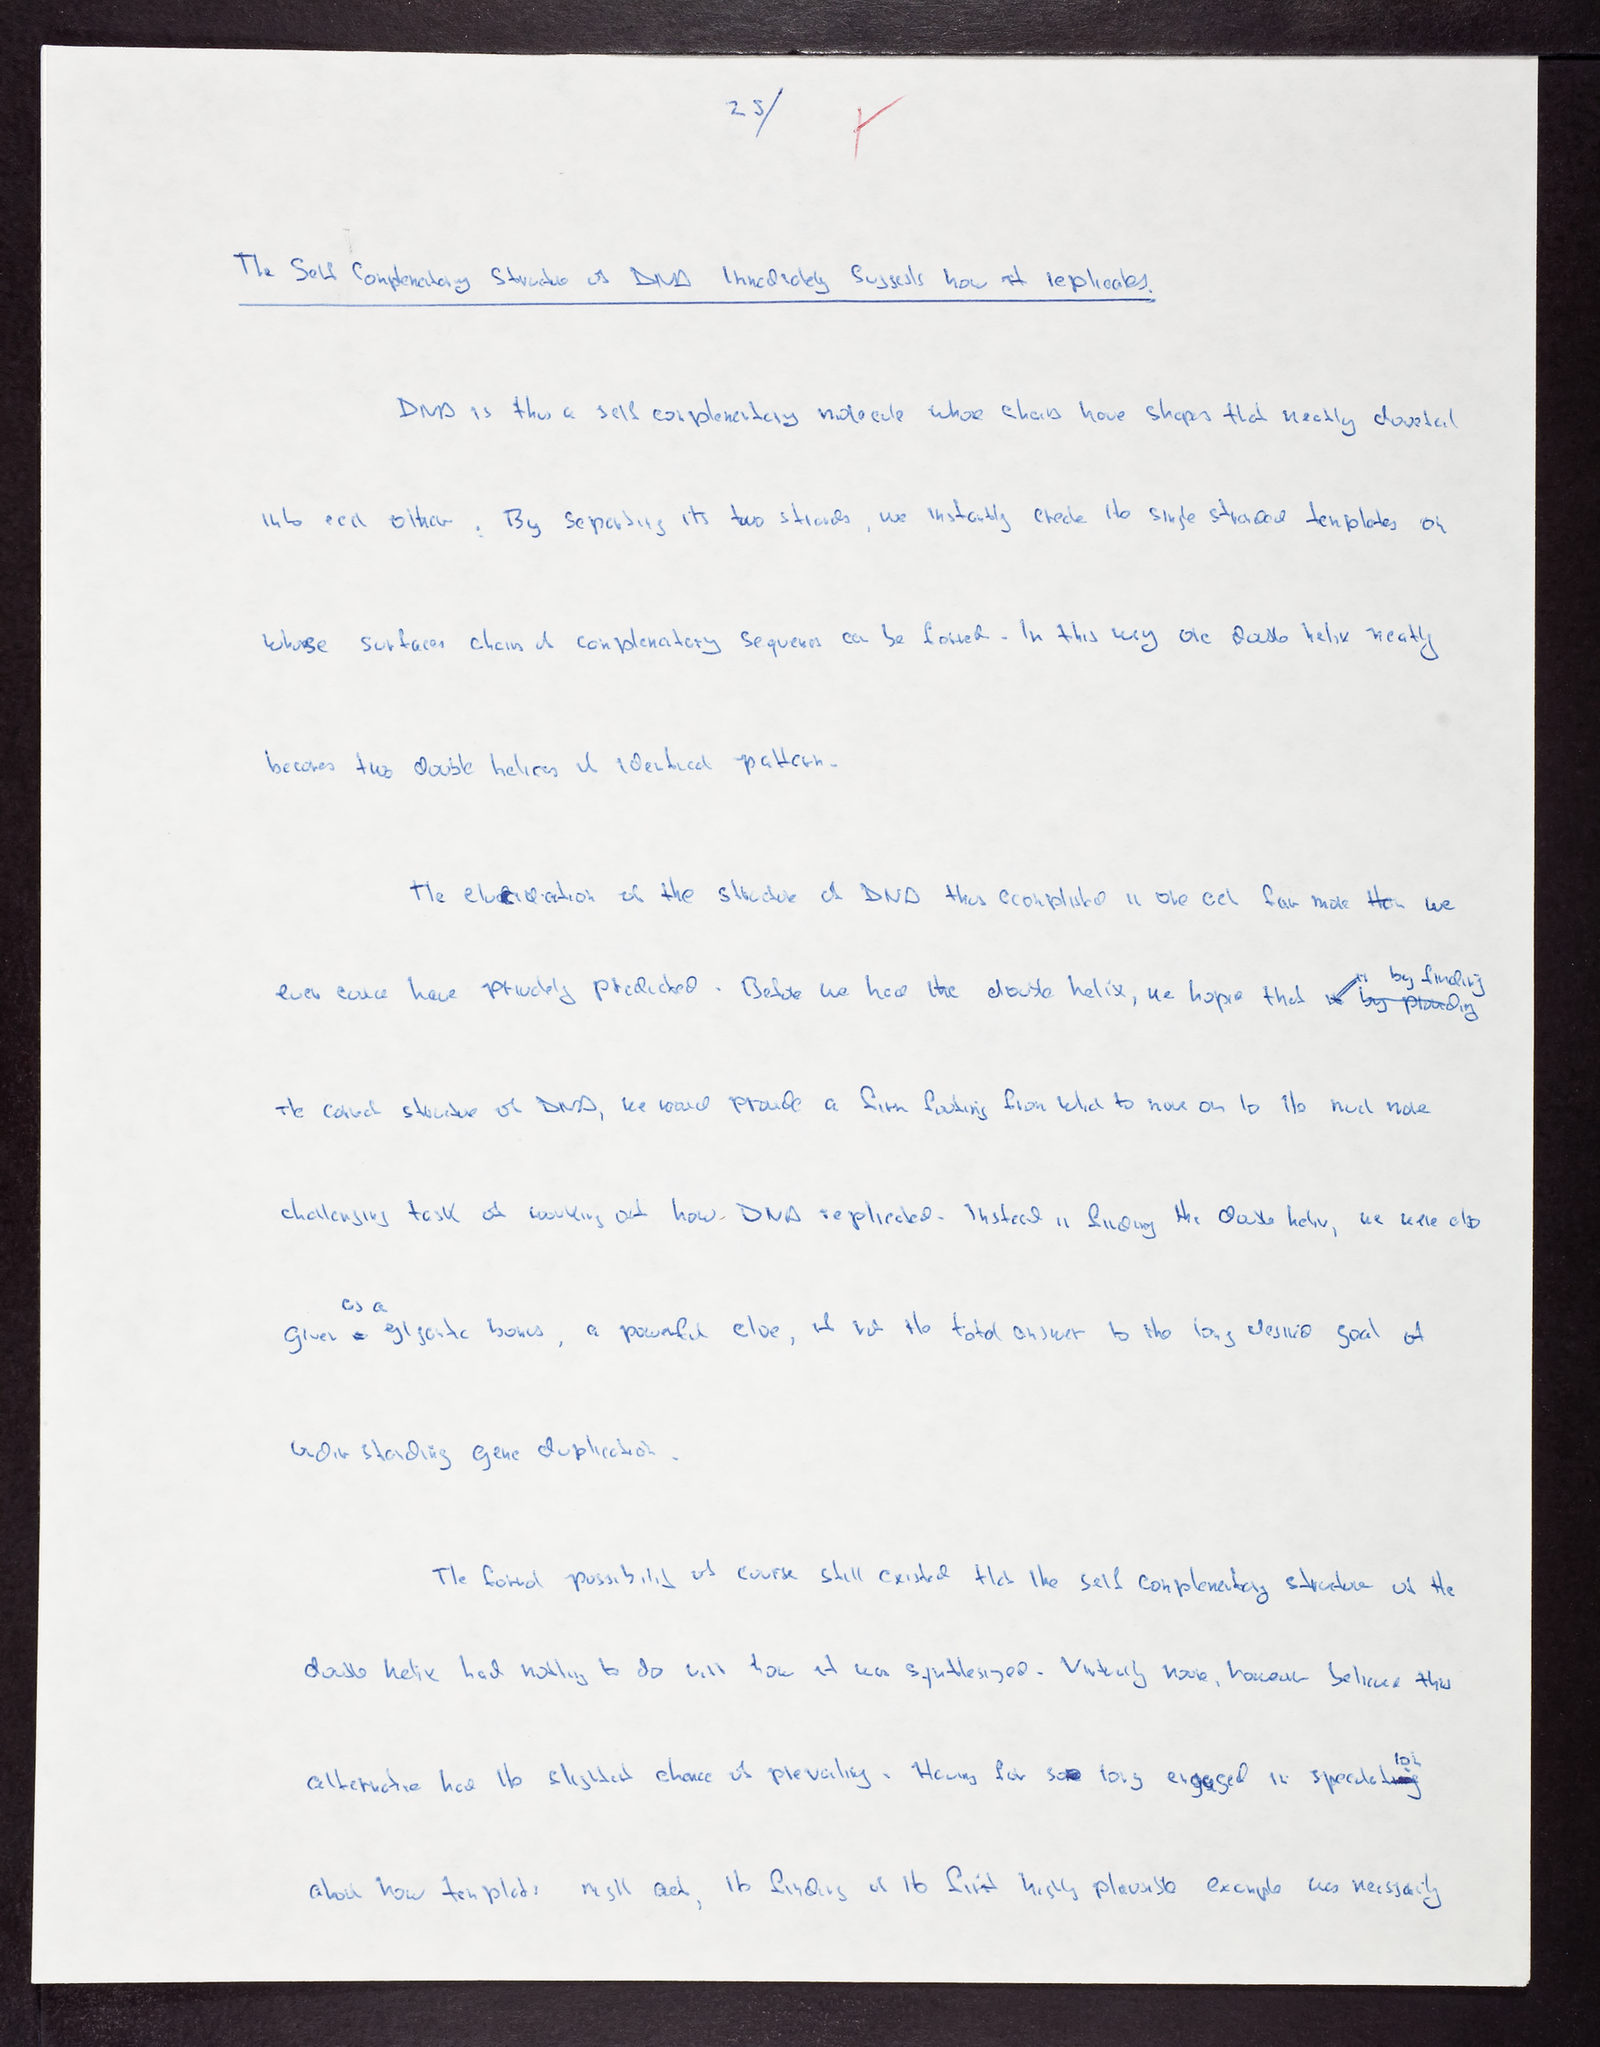 25/
The Self Complementary Structure of DNA Immediately Suggests how it replicates.
DNA is thus a self complementary molecule whose chains have shapes that neatly dovetail
into each other. By separating its two strands, we instantly create the single stranded templates on
whose surfaces chains of complementary sequences can be formed. In this way one double helix neatly
becomes two double helices of identical pattern.
The elucidation of the structure of DNA thus accomplished in one act far more than we
ever could have privately predicted. Before we had the double helix, we hoped that in by finding
the correct structure of DNA, we would provide a firm footing from which to move on to the much more
challenging task of working out how DNA replicated. Instead in finding the double helix, we were also
given as a gigantic bonus, a powerful clue, if not the total answer to the long desired goal of
understanding gene duplication.
The formal possibility of course still existed that the self complementary structure of the
double helix had nothing to do with how it was synthesized. Virtually none, however believed this
alternative had the slightest chance of prevailing. Having for so long engaged in speculation
about how templates might act, the finding of the first highly plausible example was necessarily